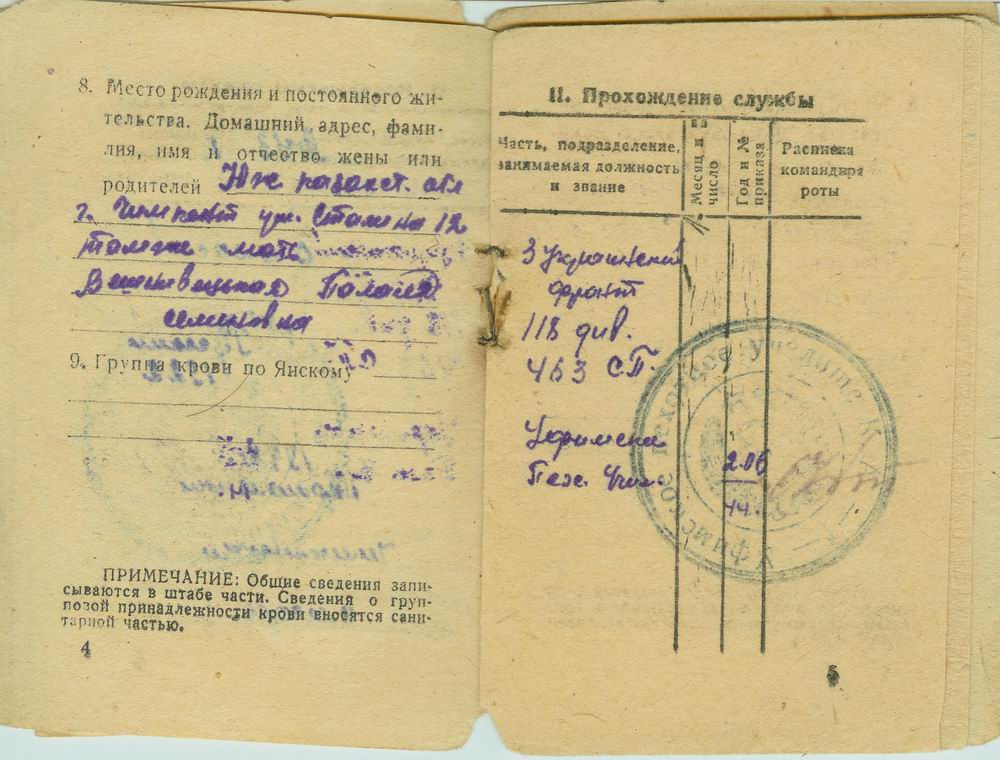 8. Место рождения и постоянного жи-
тельства. Домашний адрес, фами-
лия, имя и отчество жены или
родителей Юж казахст. обл
г. Чимкент ул. Сталина 12
там же мать
Вешневецкая Палагея
семиновна
9. Группа крови по Янскому
ПРИМЕЧАНИЕ: Общие сведения запи-
сываются в штабе части. Сведения о груп-
повой принадлежности крови вносятся сани-
тарной частью.
4
II. Прохождение службы
Часть, подразделение, занимаемая должность и звание
Месяц и число
Год и № приказа
Расписка командира роты
3 Украинский
фронт
118 див.
463 СП.
Уфимское
Пех. Учил.
206
44.
Уфимское пехотное училище К. А.
5